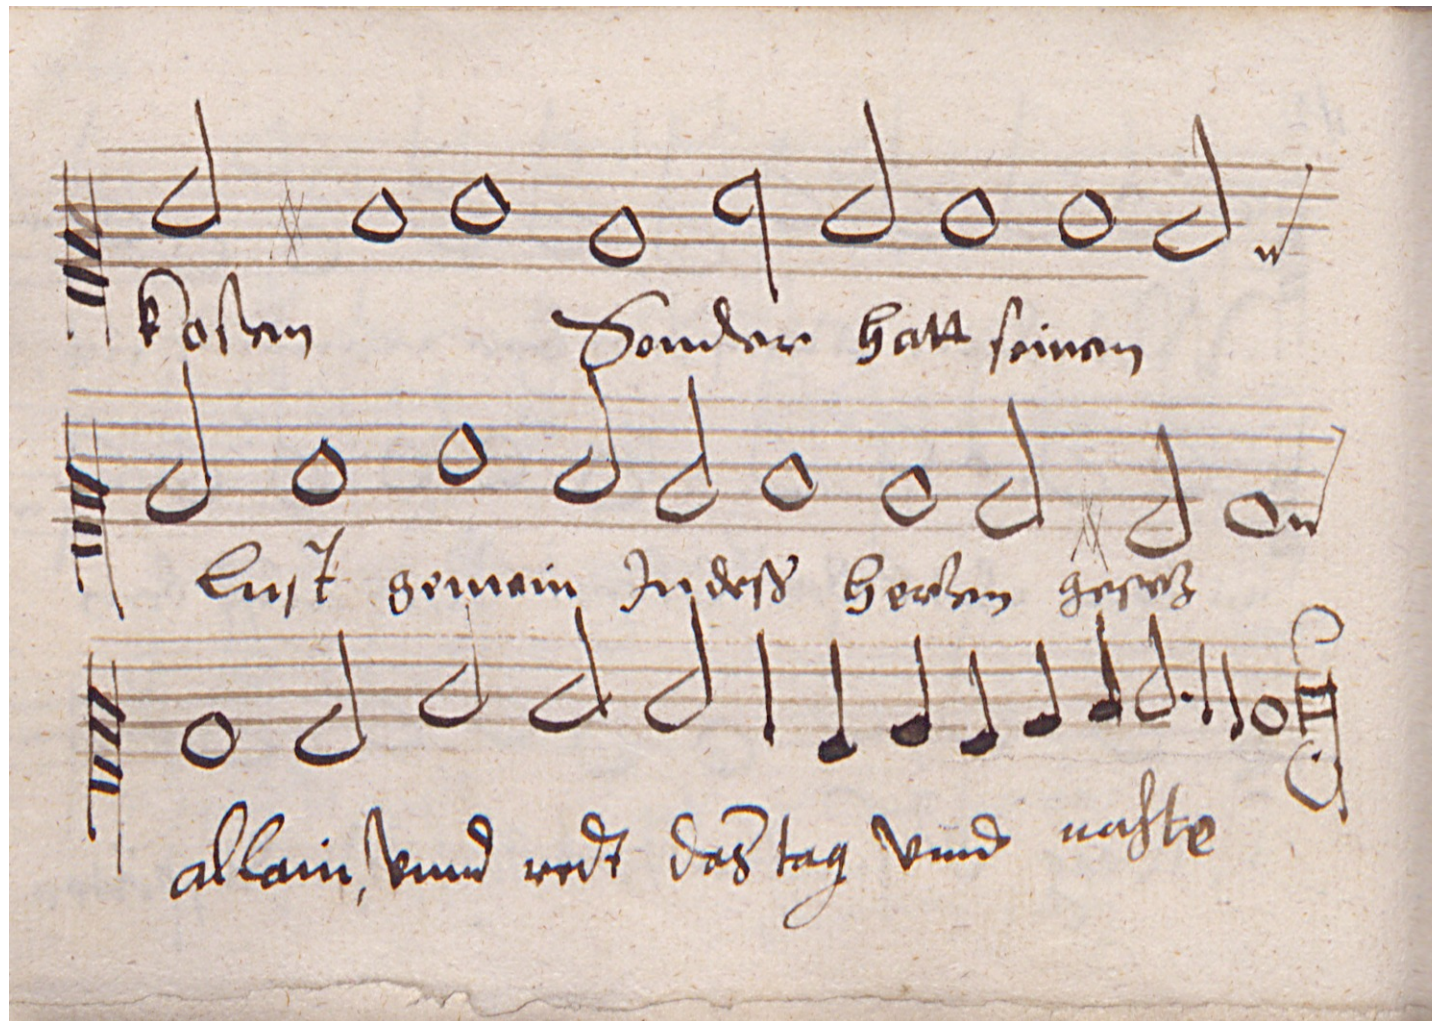 kosen Sonder hatt seinen
Lust gemein In dess herzen gesetz
allain, vnnd redt das tag vnnd nachte